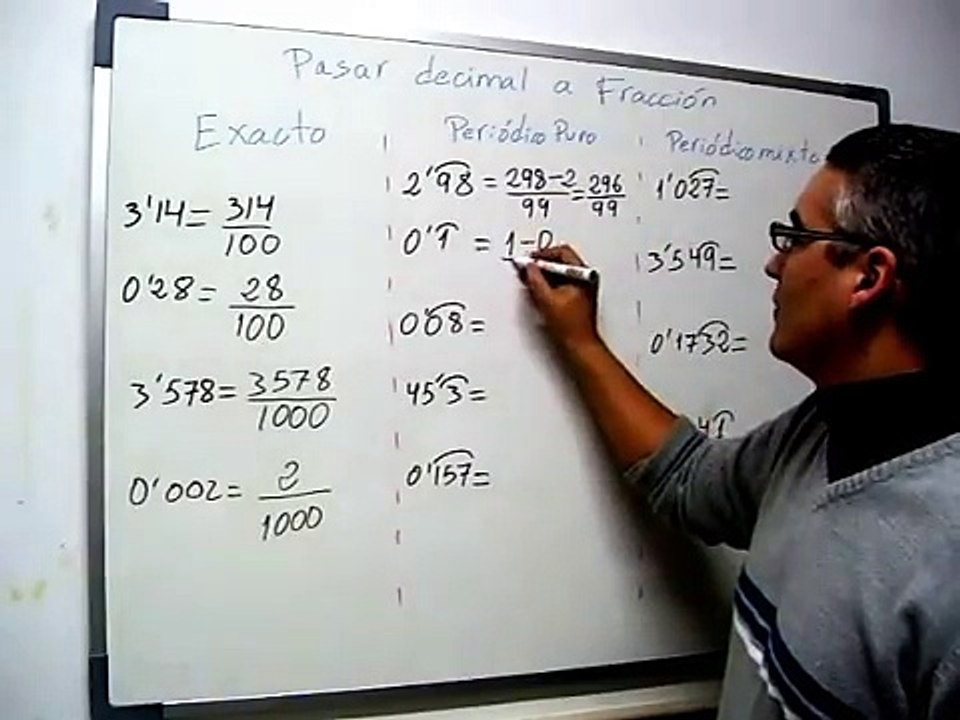 Pasar decimal a Fracción
Exacto
3'14 = 314/100
0'28 = 28/100
3'578 = 3578/1000
0'002 = 2/1000
Periódico Puro
2'98 = 298-2/99 = 296/99
0'1 = 1-0
0'08 =
45'3 =
0'157 =
Periódico mixto
1'027 =
3'549 =
0'1732 =
41